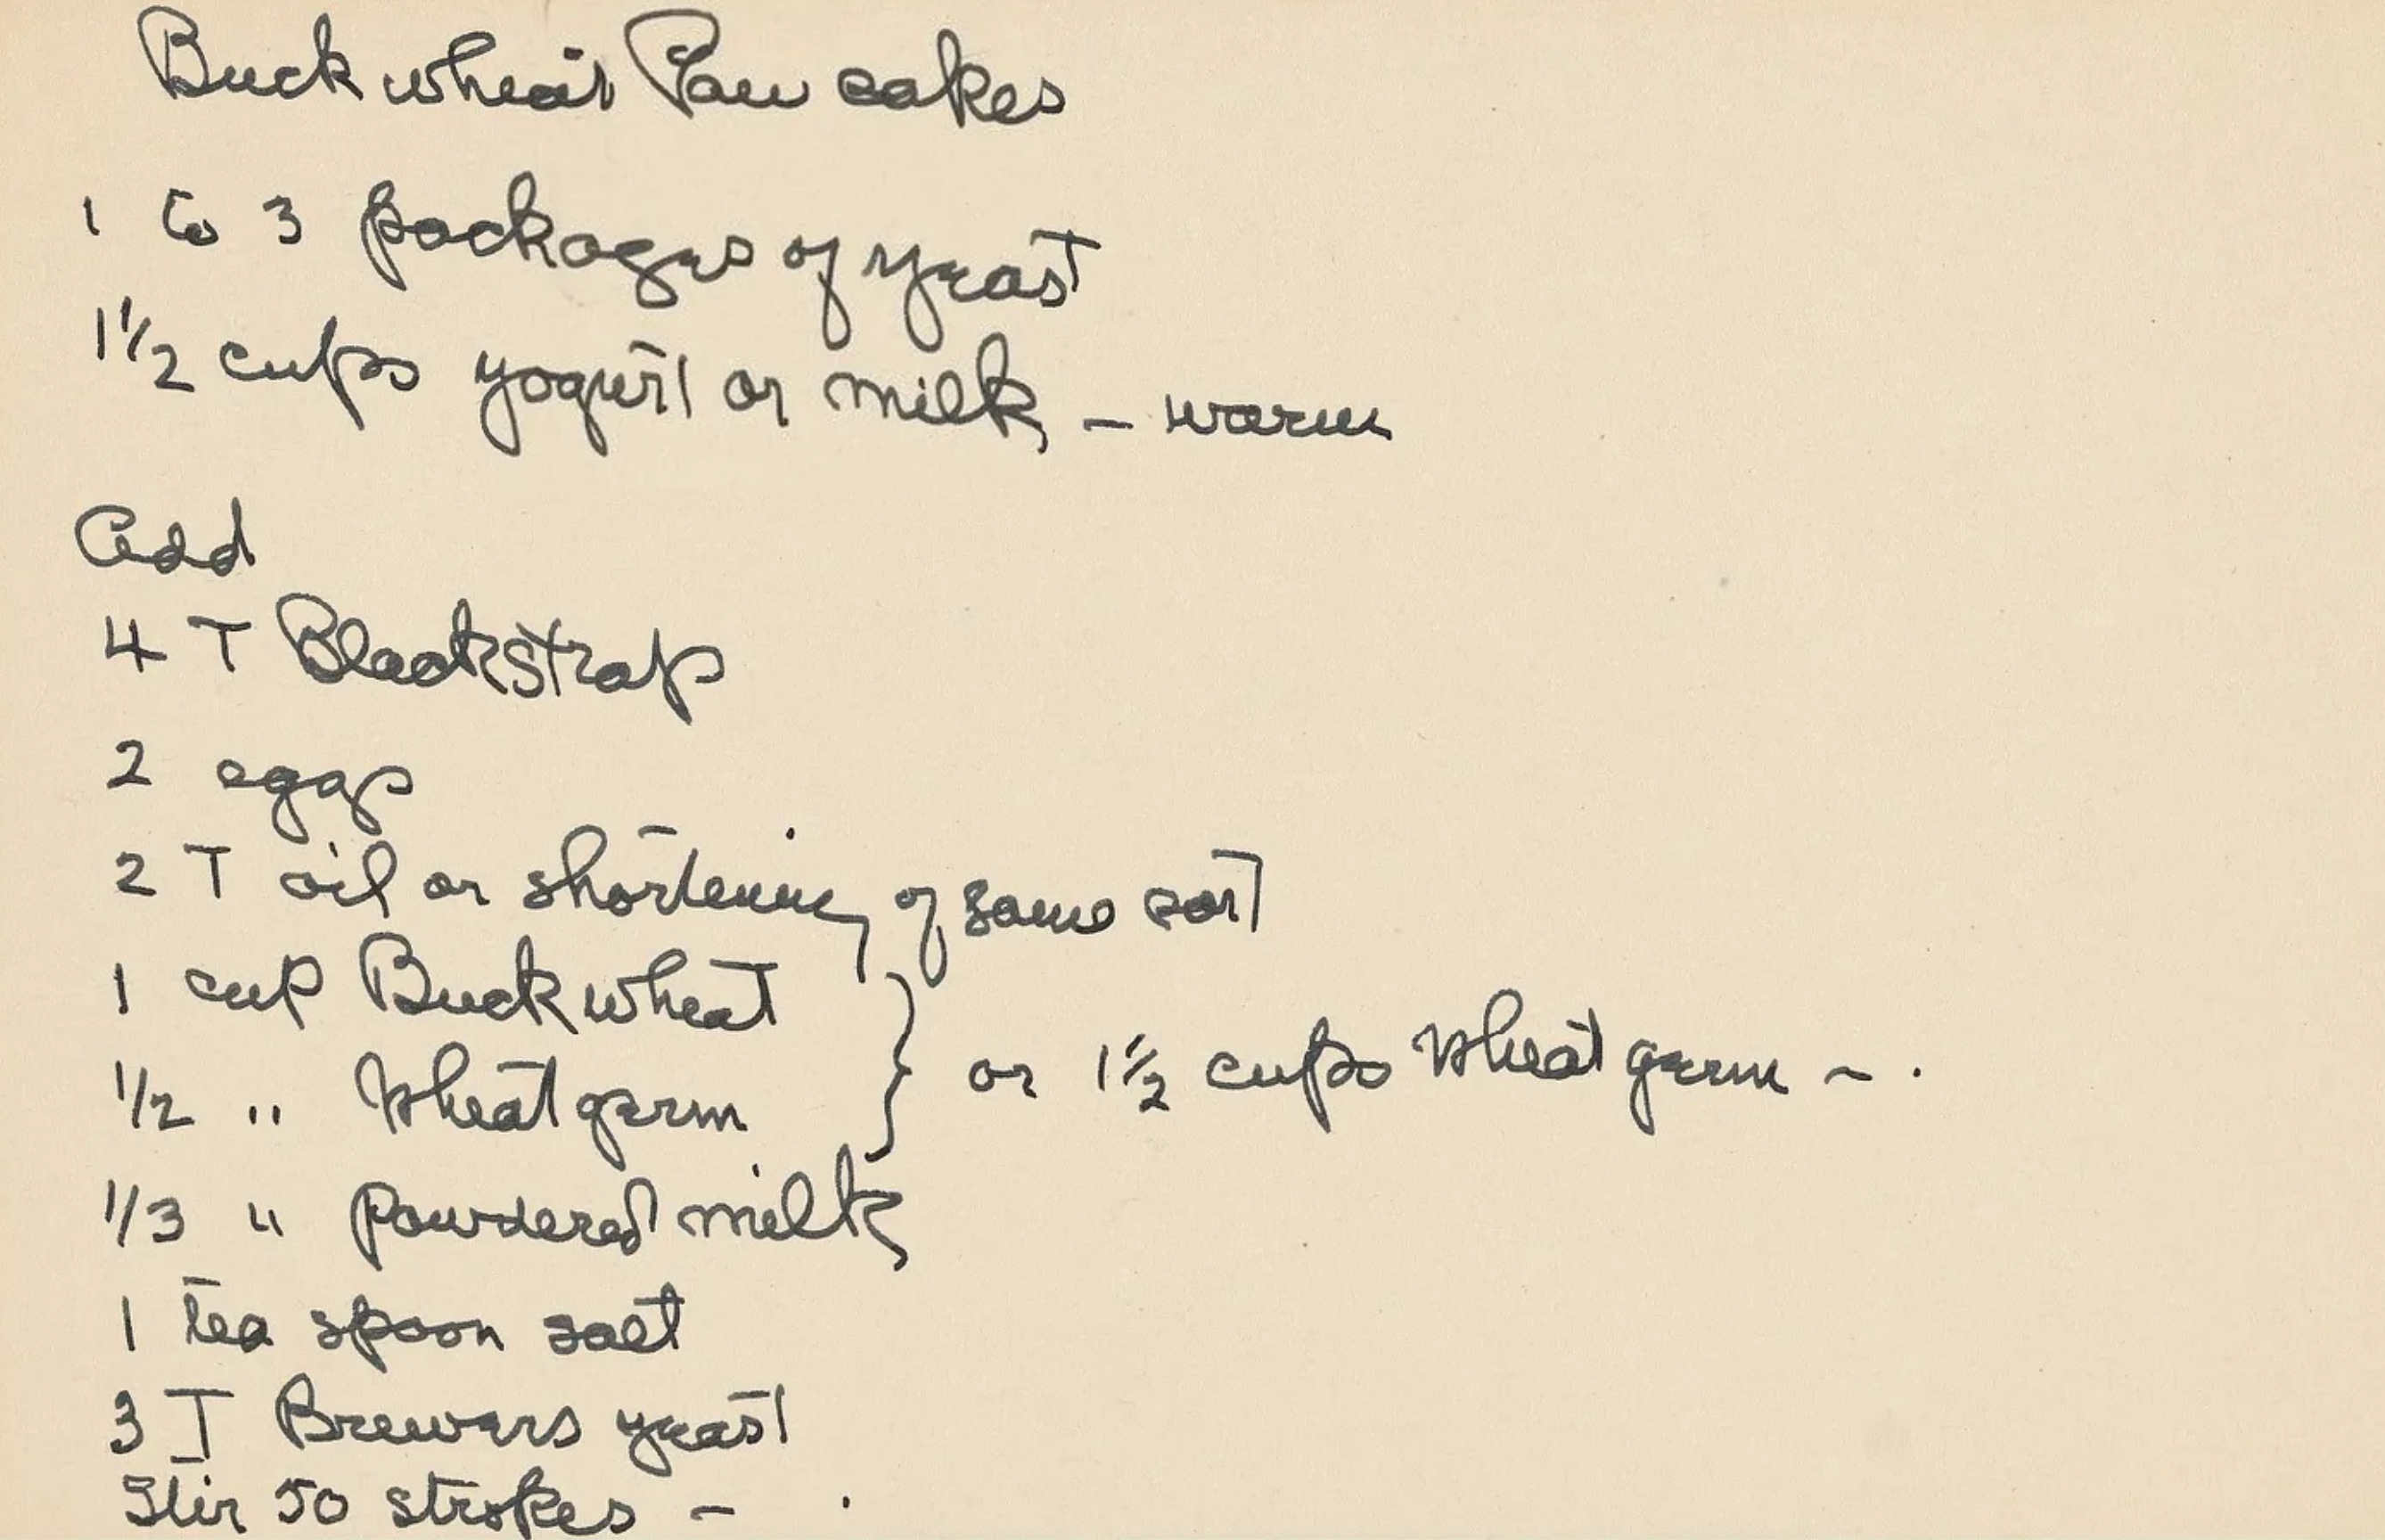 Buck wheat Pan cakes
1 to 3 packages of yeast
1 1/2 cups yogurt or milk - warm
Add
4 T Blackstrap
2 eggs
2 T oil or shortening of some sort
1 cup Buck wheat
1/2 " Wheat germ } or 1 1/2 cups Wheat germ - .
1/3 " powdered milk
1 tea spoon salt
3 T Brewers yeast
Stir 50 strokes - .